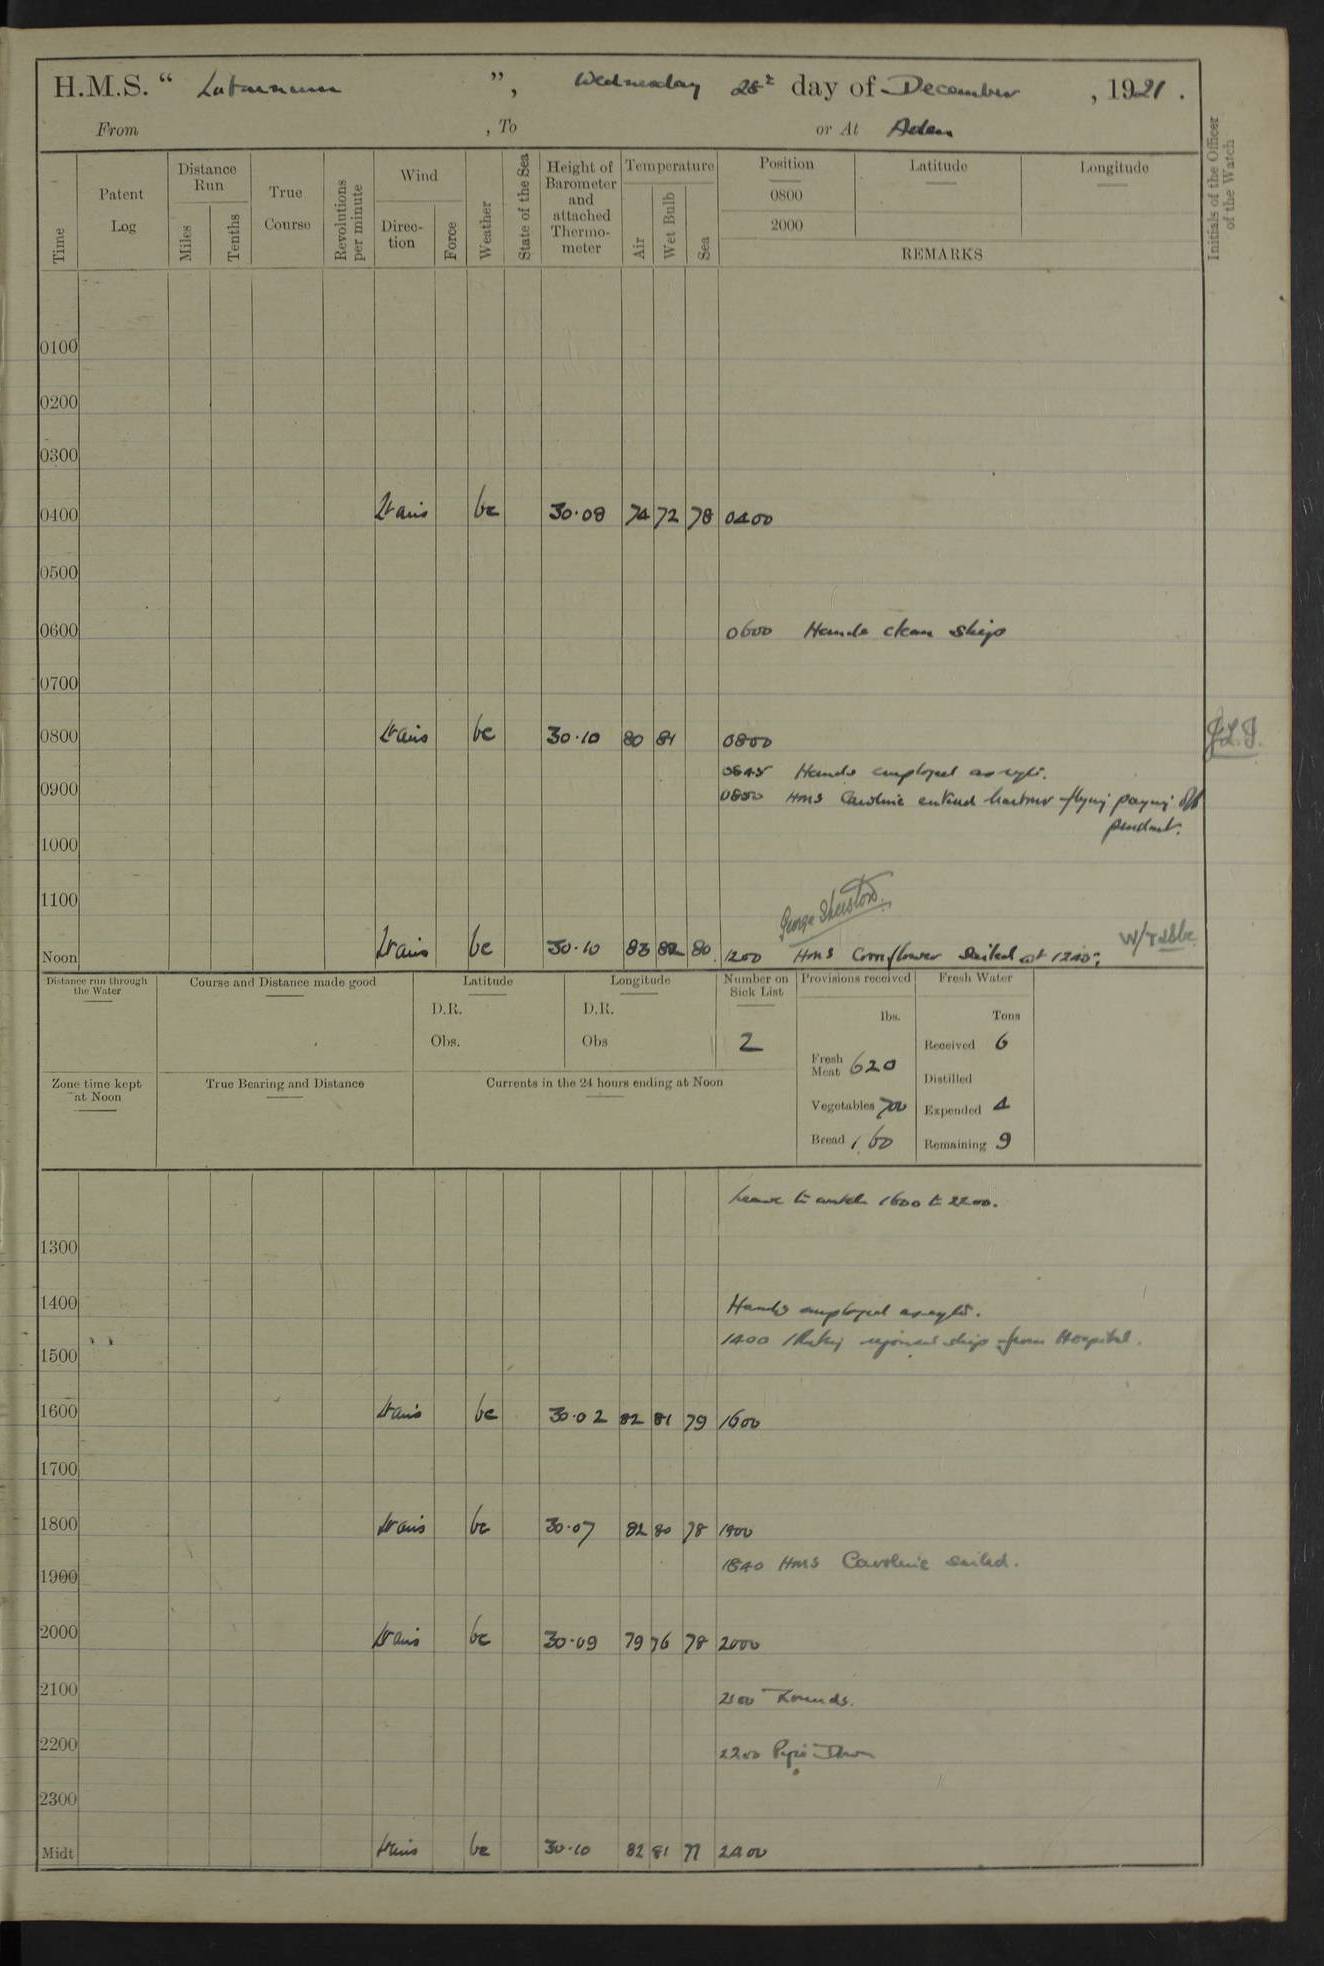 H.M.S. “ Laburnum ”, Wednesday 28th day of December, 1921.
From , To or At Aden
Time
Patent Log
Distance Run
Miles
Tenths
True Course
Revolutions per minute
Wind
Direction
Force
Weather
State of the Sea
Height of Barometer and attached Thermometer
Temperature
Air
Wet Bulb
Sea
Position
0800
2000
Latitude
Longitude
REMARKS
Initials of the Officer of the Watch
0100
0200
0300
0400 Lt airs bc 30.08 74 72 78 0400
0500
0600 0600 Hands clean ship
0700
0800 Lt airs bc 30.10 80 81 0800
0845 Hands employed as reqte.
0900 0850 HMS Caroline entered harbour flying paying off
pendant.
1000
1100
George Sherston
Noon Lt airs bc 30.10 83 82 80 1200 HMS Cornflower sailed at 1215.
Distance run through the Water
Course and Distance made good
Latitude
D.R.
Obs.
Longitude
D.R.
Obs
Number on Sick List
2
Provisions received
lbs.
Fresh Meat 620
Vegetables 700
Bread 160
Fresh Water
Tons
Received 6
Distilled
Expended 4
Remaining 9
Zone time kept at Noon
True Bearing and Distance
Currents in the 24 hours ending at Noon
Leave to watch 1600 to 2200.
1300
1400 Hands employed as reqte.
1400 1 Rating rejoined ship from Hospital.
1500
1600 Lt airs bc 30.02 82 81 79 1600
1700
1800 Lt airs bc 30.07 82 80 78 1800
1840 HMS Caroline sailed.
1900
2000 Lt airs bc 30.09 79 76 78 2000
2100 2100 Rounds.
2200 2200 Pipe Down
2300
Midt Lt airs bc 30.10 82 81 77 2400